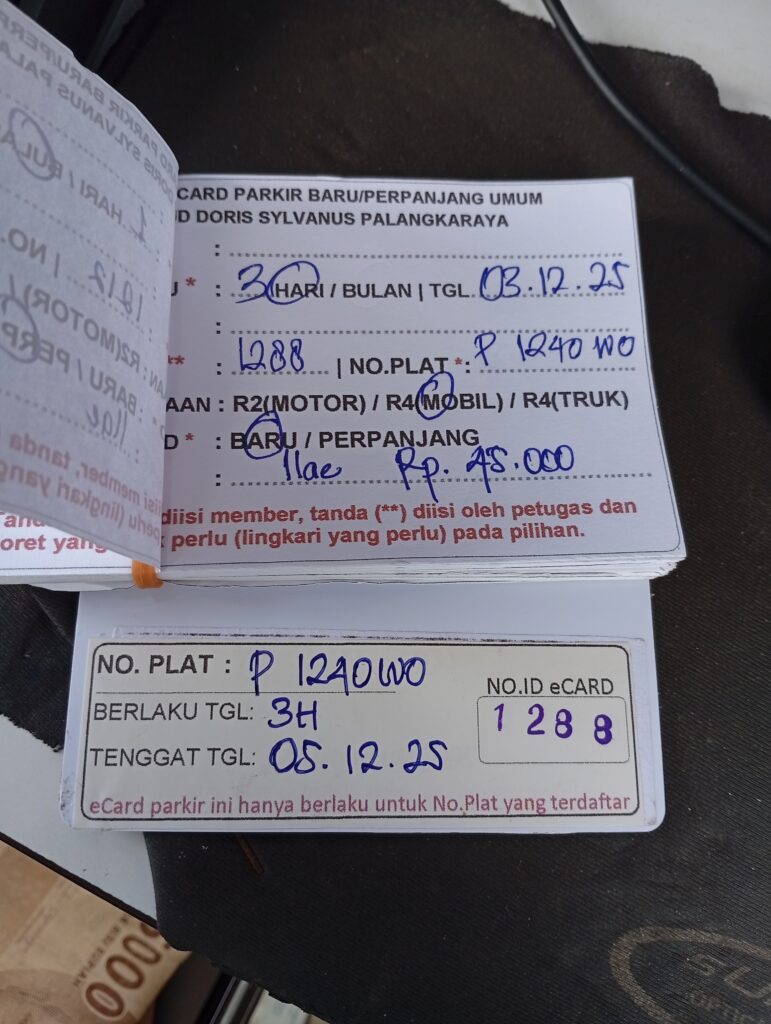 CARD PARKIR BARU/PERPANJANG UMUM
D DORIS SYLVANUS PALANGKARAYA
:
* : 3 HARI / BULAN | TGL. 03.12.25
:
** : 1288 | NO.PLAT *: P 1240 WO
AAN : R2(MOTOR) / R4(MOBIL) / R4(TRUK)
D * : BARU / PERPANJANG
: Rp. 45.000
diisi member, tanda (**) diisi oleh petugas dan
oret yang perlu (lingkari yang perlu) pada pilihan.
NO. PLAT : P 1240 WO
NO.ID eCARD
BERLAKU TGL: 3H
1288
TENGGAT TGL: 05.12.25
eCard parkir ini hanya berlaku untuk No.Plat yang terdaftar